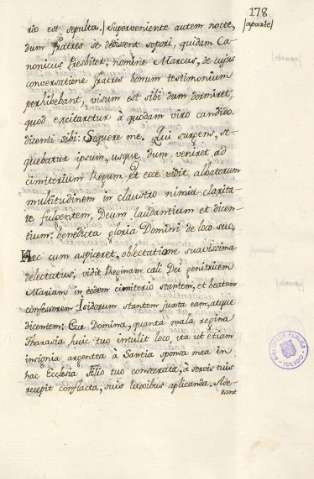 178
[aparte]
rio est sepulta. Superveniente autem nocte,
dum fratres se dedissent sopori, quidam Ca-
nonicus Presbiter, nomine Marcus, de cujus
conversatione fratres bonum testimonium
perhibebant, visum est sibi dum dormiret,
quod excitaretur à quodam viro candido
dicenti sibi: Sequere me. Qui surgens, se-
quebatur ipsum, usque dum veniret ad
cimitorium Regum et ecce vidit albatorum
multitudinem in claustro nimia clarita-
te fulgentem, Deum laudantium et dicen-
tium: benedicta gloria Domini de loco suo,
Hec cum aspiceret, oblectatione suavissima
delectatus, vidit Reginam celi Dei genitricem
Mariam in eodem cimiterio stantem, et beatum
confessorem Isidorum stantem juxta eam, atque
dicentem: Ecce Domina, quanta mala regina
Tharasia huic tuo intulit loco, ita ut etiam
insignia argentea à Santia sponsa mea in
hac Ecclesia Filio tuo consecrata, à servis tuis
recepit conflacta, suis usibus aplicanda. Ads-
tant